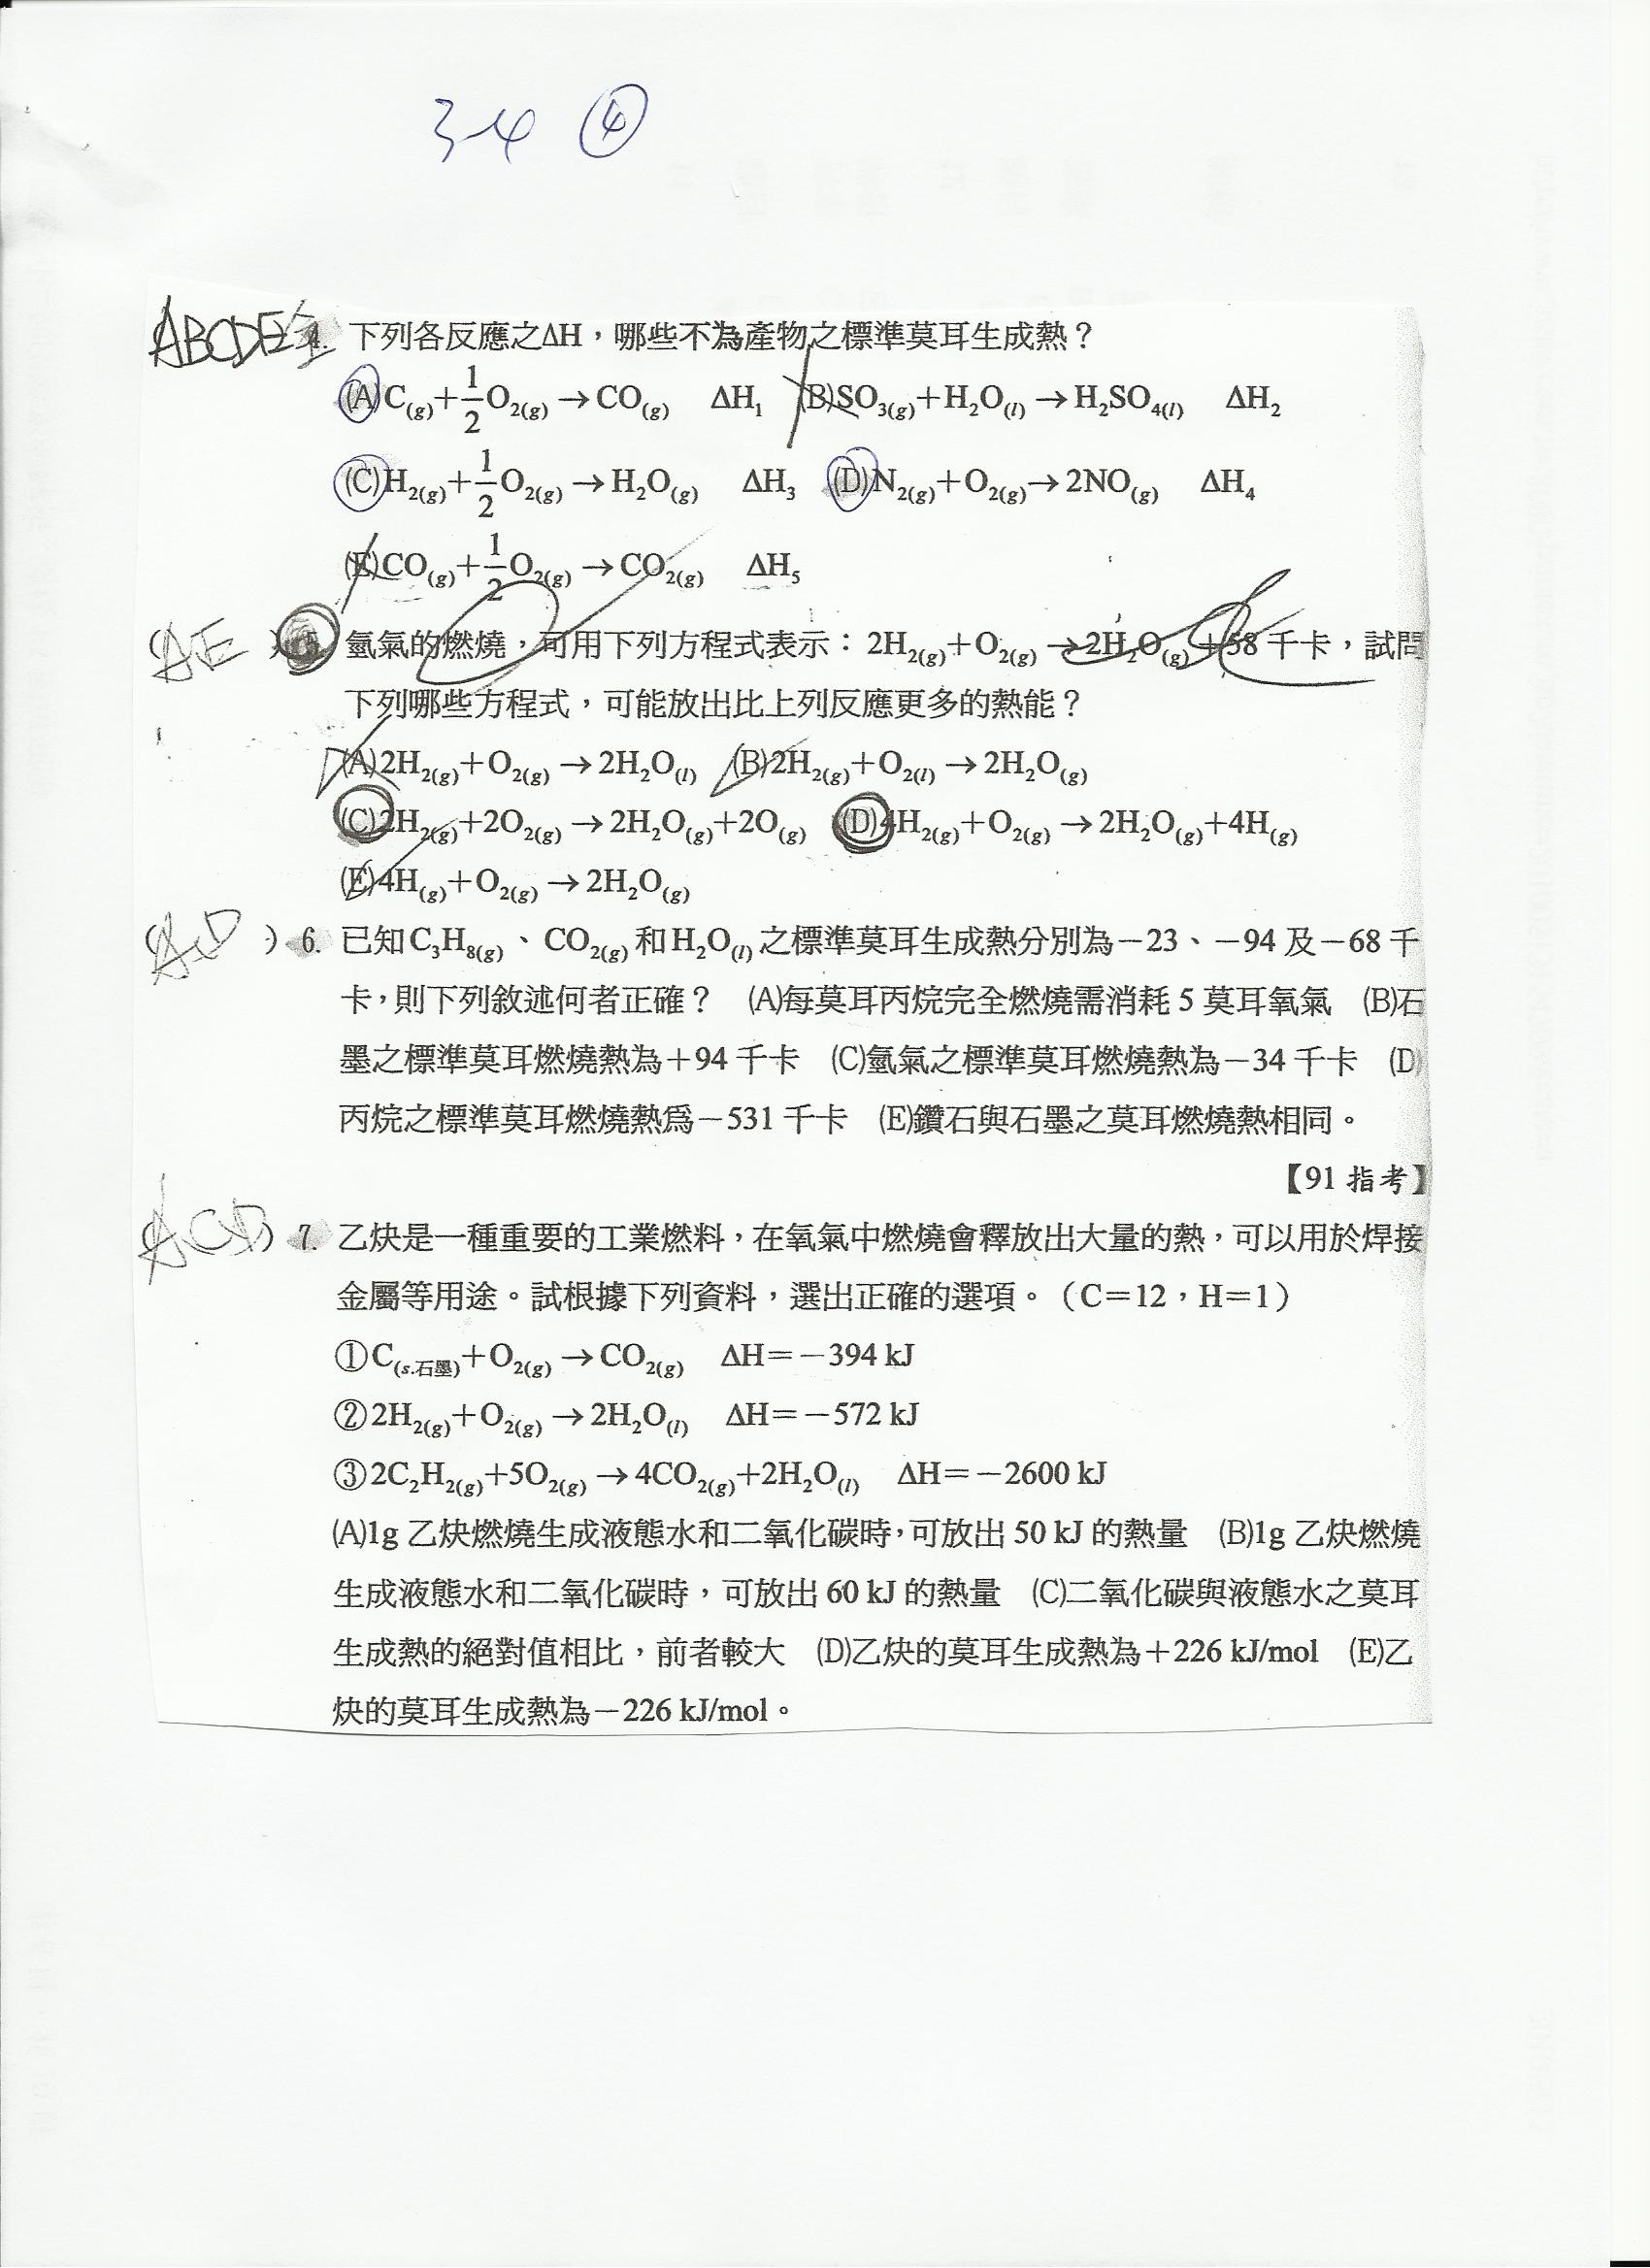 34 ④
ABCDE全 4. 下列各反應之ΔH，哪些不為產物之標準莫耳生成熱？
(A)C(g)+1/2O2(g)→CO(g) ΔH1 (B)SO3(g)+H2O(l)→H2SO4(l) ΔH2
(C)H2(g)+1/2O2(g)→H2O(g) ΔH3 (D)N2(g)+O2(g)→2NO(g) ΔH4
(E)CO(g)+1/2O2(g)→CO2(g) ΔH5
AE )5. 氫氣的燃燒，可用下列方程式表示：2H2(g)+O2(g)→2H2O(g)+58千卡，試問
下列哪些方程式，可能放出比上列反應更多的熱能？
(A)2H2(g)+O2(g)→2H2O(l) (B)2H2(g)+O2(l)→2H2O(g)
(C)2H2(g)+2O2(g)→2H2O(g)+2O(g) (D)4H2(g)+O2(g)→2H2O(g)+4H(g)
(E)4H(g)+O2(g)→2H2O(g)
) 6. 已知C3H8(g)、CO2(g)和H2O(l)之標準莫耳生成熱分別為－23、－94及－68千
卡，則下列敘述何者正確？ (A)每莫耳丙烷完全燃燒需消耗5莫耳氧氣 (B)石
墨之標準莫耳燃燒熱為＋94千卡 (C)氫氣之標準莫耳燃燒熱為－34千卡 (D)
丙烷之標準莫耳燃燒熱為－531千卡 (E)鑽石與石墨之莫耳燃燒熱相同。
【91指考】
ACD ) 7. 乙炔是一種重要的工業燃料，在氧氣中燃燒會釋放出大量的熱，可以用於焊接
金屬等用途。試根據下列資料，選出正確的選項。（C＝12，H＝1）
①C(s.石墨)+O2(g)→CO2(g) ΔH＝－394 kJ
②2H2(g)+O2(g)→2H2O(l) ΔH＝－572 kJ
③2C2H2(g)+5O2(g)→4CO2(g)+2H2O(l) ΔH＝－2600 kJ
(A)1g乙炔燃燒生成液態水和二氧化碳時，可放出50 kJ的熱量 (B)1g乙炔燃燒
生成液態水和二氧化碳時，可放出60 kJ的熱量 (C)二氧化碳與液態水之莫耳
生成熱的絕對值相比，前者較大 (D)乙炔的莫耳生成熱為＋226 kJ/mol (E)乙
炔的莫耳生成熱為－226 kJ/mol。